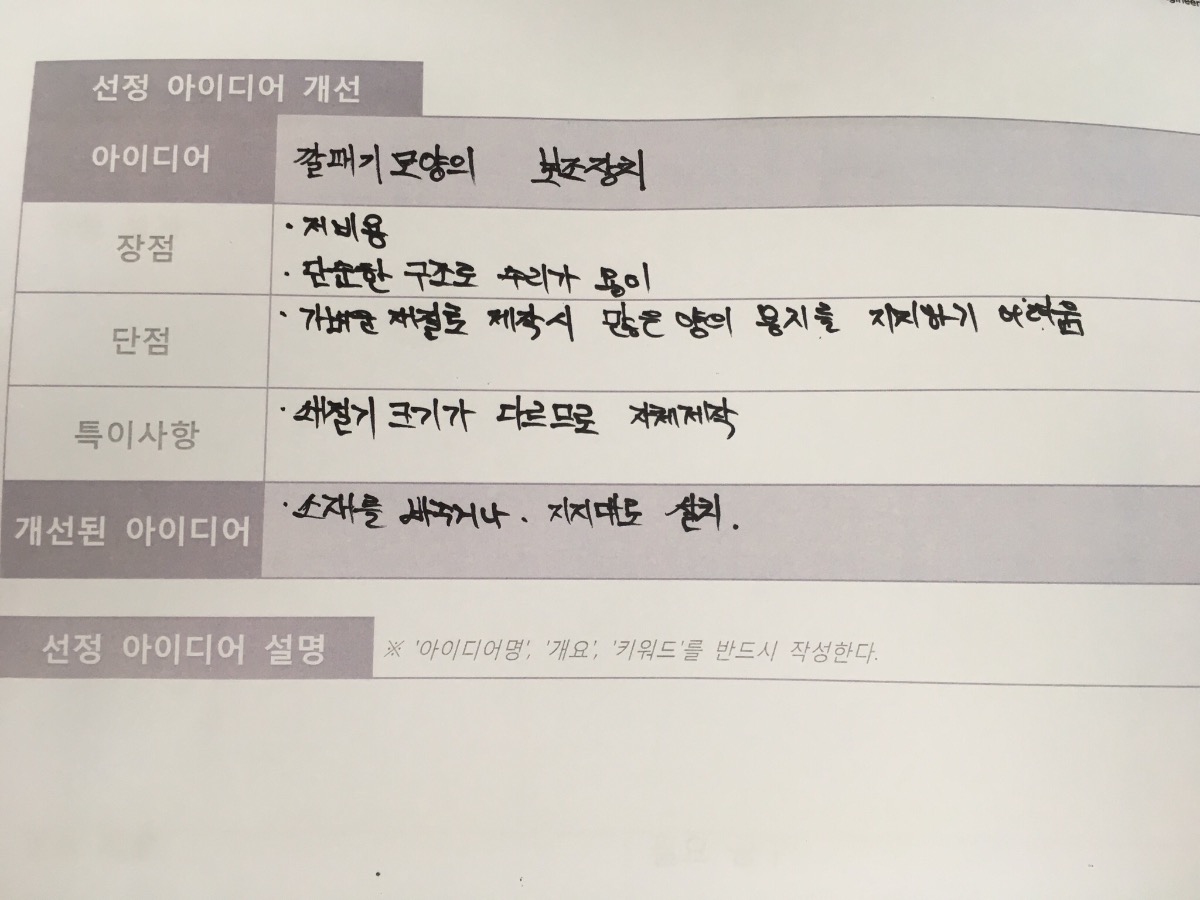 선정 아이디어 개선
아이디어 깔때기 모양의 보조장치
장점 · 저비용
· 단순한 구조로 수리가 용이
단점 · 가벼운 재질로 제작시 많은 양의 용지를 지지하기 어려움
특이사항 · 세절기 크기가 다르므로 자체제작
개선된 아이디어 · 소재를 바꾸거나. 지지대도 설치.
선정 아이디어 설명 ※ '아이디어명', '개요', '키워드'를 반드시 작성한다.